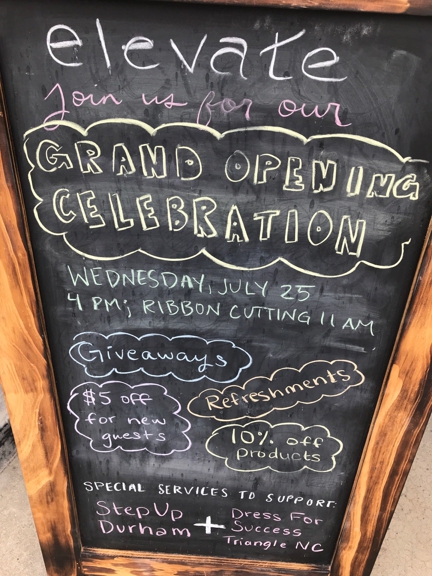 elevate
Join us for our
GRAND OPENING
CELEBRATION
WEDNESDAY, JULY 25
4 PM; RIBBON CUTTING 11 AM
Giveaways
Refreshments
$5 off
for new
guests
10% off
products
SPECIAL SERVICES TO SUPPORT:
StepUp
Durham
+
Dress For
Success
Triangle NC